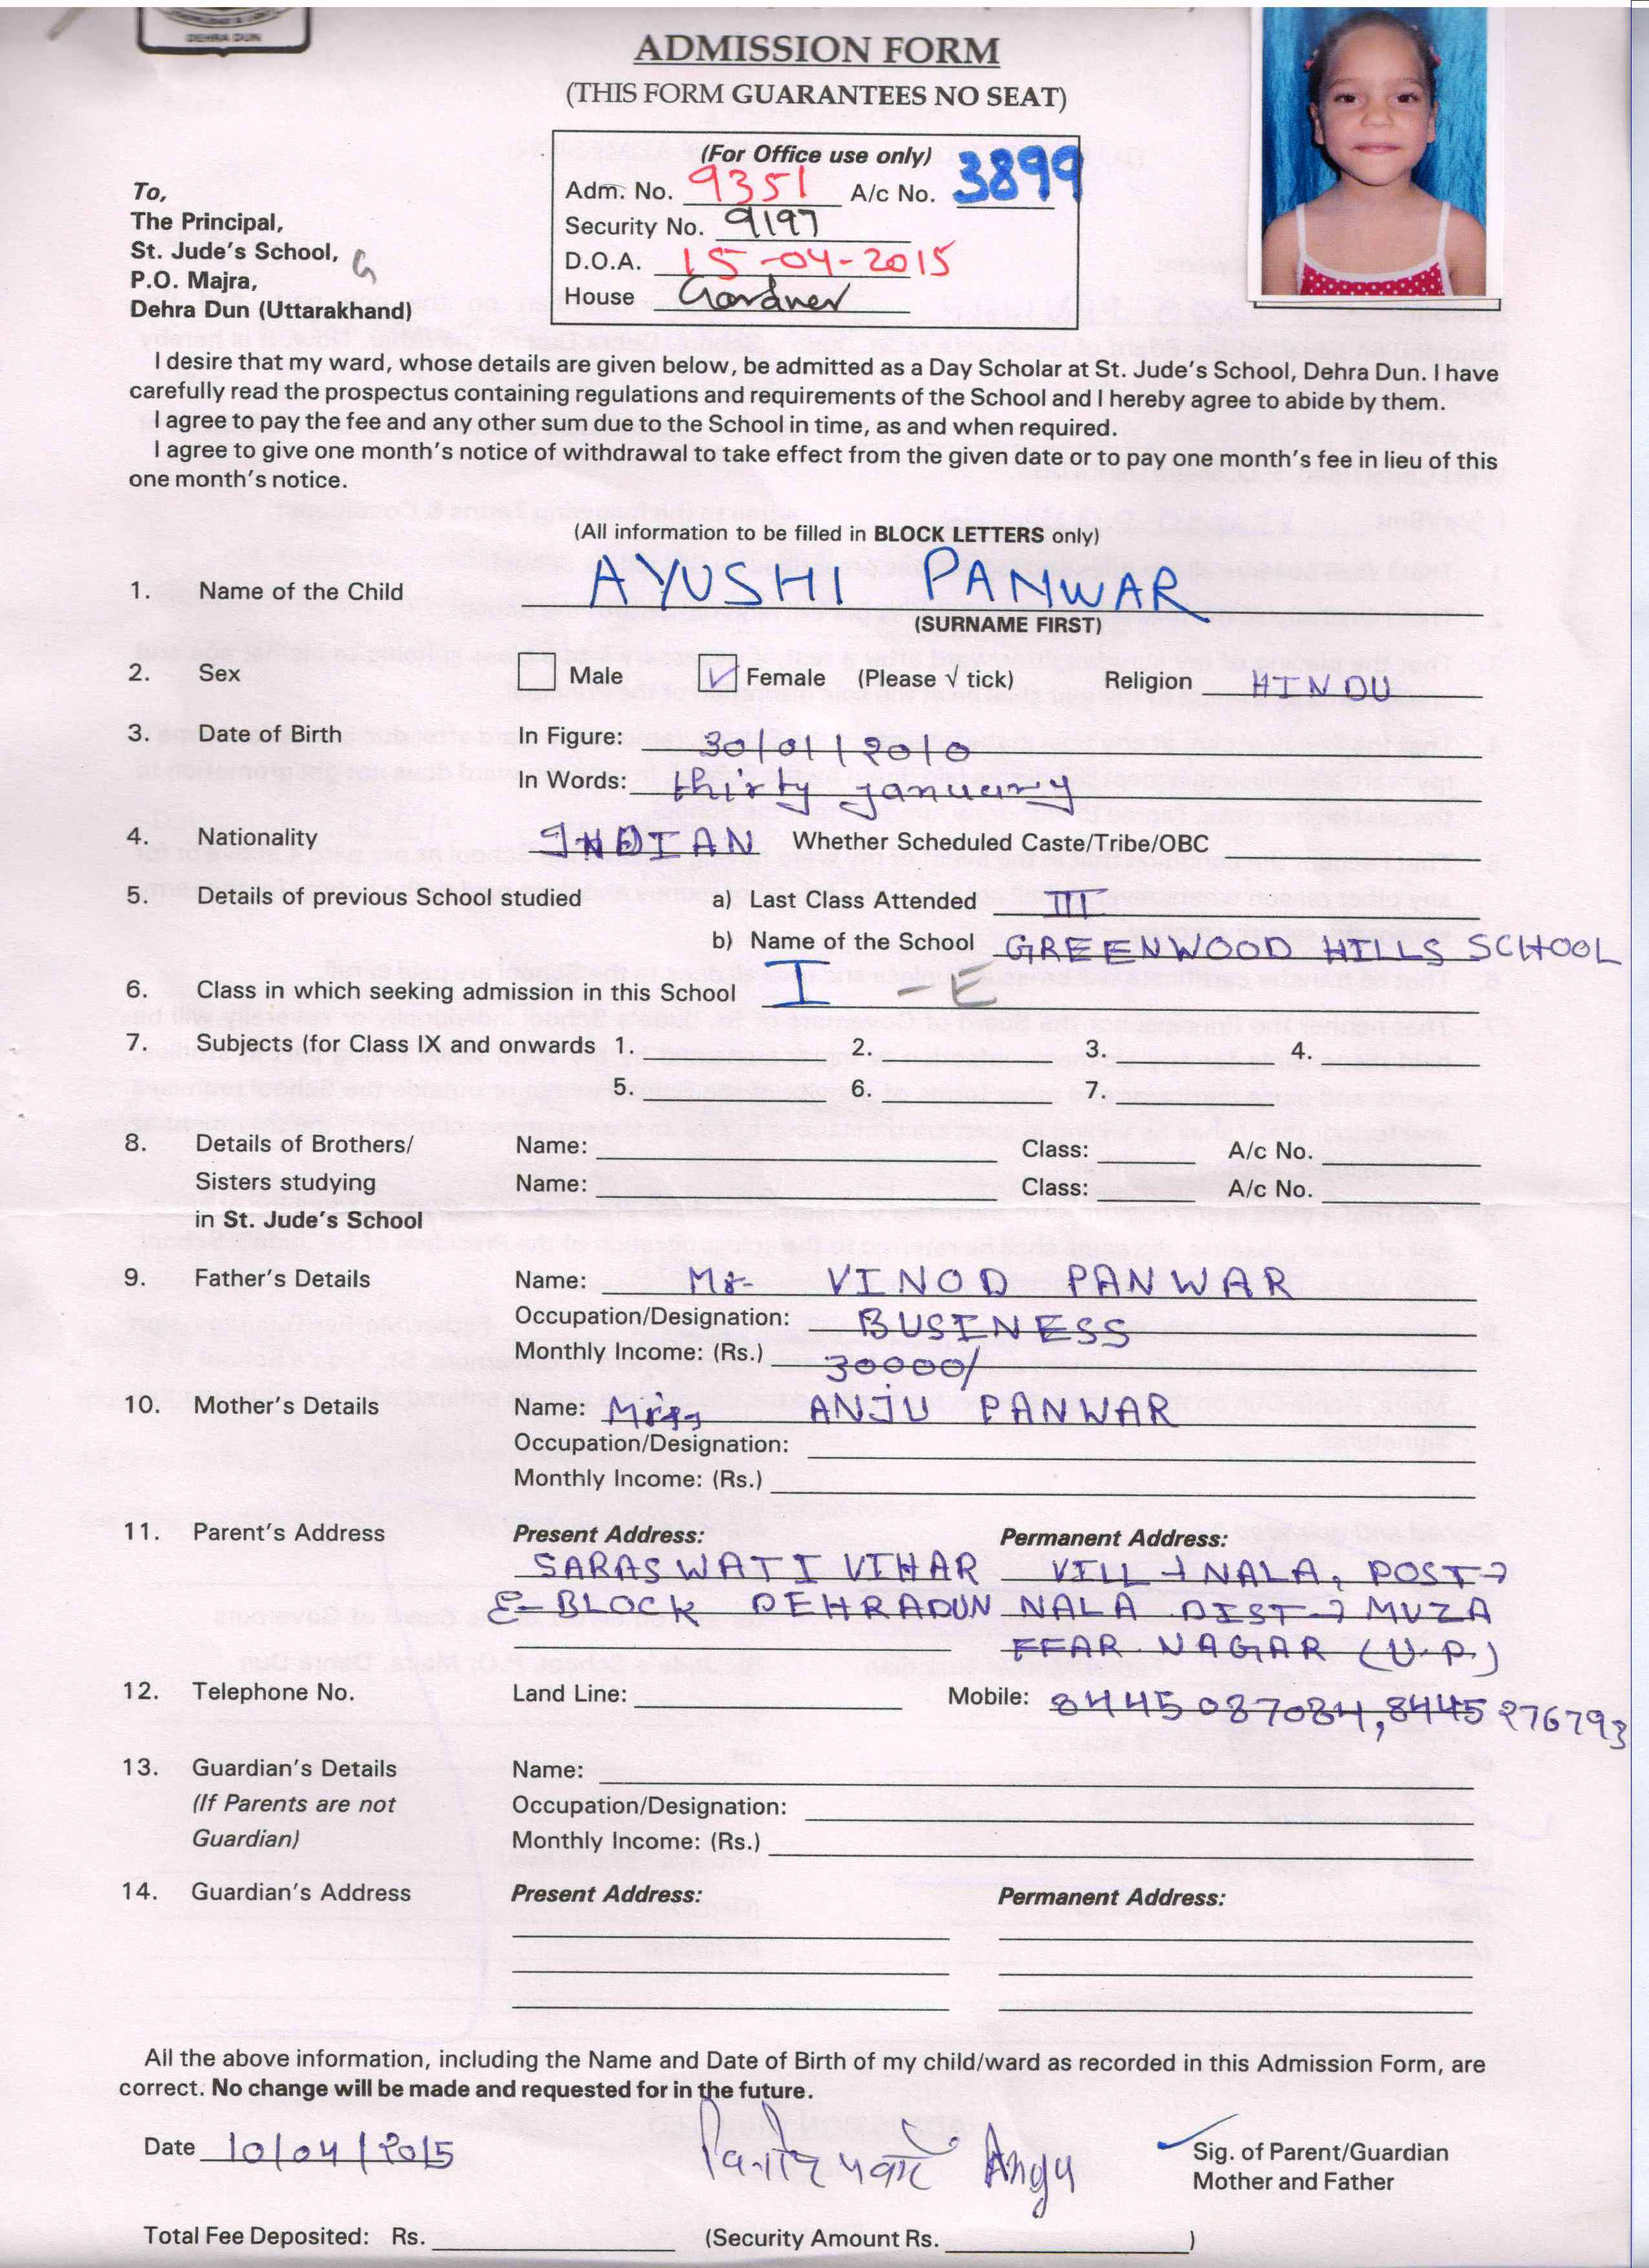 DEHRA DUN
ADMISSION FORM
(THIS FORM GUARANTEES NO SEAT)
(For Office use only)
Adm. No. 9351 A/c No. 3899
Security No. 9197
D.O.A. 15-04-2015
House Gardner
To,
The Principal,
St. Jude's School, G
P.O. Majra,
Dehra Dun (Uttarakhand)
I desire that my ward, whose details are given below, be admitted as a Day Scholar at St. Jude's School, Dehra Dun. I have
carefully read the prospectus containing regulations and requirements of the School and I hereby agree to abide by them.
I agree to pay the fee and any other sum due to the School in time, as and when required.
I agree to give one month's notice of withdrawal to take effect from the given date or to pay one month's fee in lieu of this
one month's notice.
(All information to be filled in BLOCK LETTERS only)
1. Name of the Child AYUSHI PANWAR
(SURNAME FIRST)
2. Sex Male Female (Please √ tick) Religion HINDU
3. Date of Birth In Figure: 30/01/2010
In Words: thirty january
4. Nationality INDIAN Whether Scheduled Caste/Tribe/OBC
5. Details of previous School studied a) Last Class Attended III
b) Name of the School GREENWOOD HILLS SCHOOL
6. Class in which seeking admission in this School I - E
7. Subjects (for Class IX and onwards 1. 2. 3. 4.
5. 6. 7.
8. Details of Brothers/ Name: Class: A/c No.
Sisters studying Name: Class: A/c No.
in St. Jude's School
9. Father's Details Name: Mr- VINOD PANWAR
Occupation/Designation: BUSINESS
Monthly Income: (Rs.) 30000/
10. Mother's Details Name: ANJU PANWAR
Occupation/Designation:
Monthly Income: (Rs.)
11. Parent's Address Present Address: Permanent Address:
SARASWATI VIHAR VILL → NALA, POST →
E-BLOCK DEHRADUN NALA DIST → MUZA
FFAR NAGAR (U.P.)
12. Telephone No. Land Line: Mobile: 8445087084, 8445276793
13. Guardian's Details Name:
(If Parents are not Occupation/Designation:
Guardian) Monthly Income: (Rs.)
14. Guardian's Address Present Address: Permanent Address:
All the above information, including the Name and Date of Birth of my child/ward as recorded in this Admission Form, are
correct. No change will be made and requested for in the future.
Date 10/04/2015 Anju Sig. of Parent/Guardian
Mother and Father
Total Fee Deposited: Rs. (Security Amount Rs. )